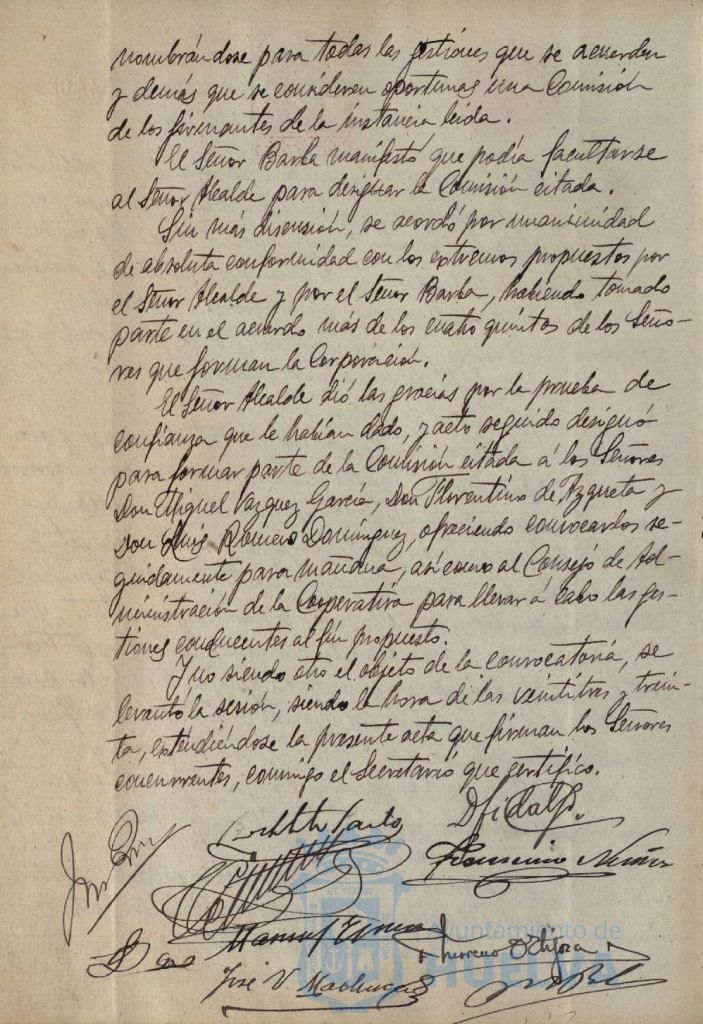 nombrándose para todas las gestiones que se acuerden
y demás que se consideren oportunas una Comisión
de los firmantes de la instancia leida.
El Señor Barba manifestó que podía facultarse
al Señor Alcalde para designar la Comisión citada.
Sin más discusión, se acordó por unanimidad
de absoluta conformidad con los extremos propuestos por
el Señor Alcalde y por el Señor Barba, habiendo tomado
parte en el acuerdo más de los cuatro quintos de los Seño-
res que forman la Corporación.
El Señor Alcalde dió las gracias por la prueba de
confianza que le habían dado, y acto seguido designó
para formar parte de la Comisión citada á los Señores
Don Miguel Vazquez García, Don Florentino de Azqueta y
Don Luís Romero Dominguez, ofreciendo convocarlos se-
guidamente para mañana, así como al Consejo de Ad-
ministración de la Cooperativa para llevar á cabo las ges-
tiones conducentes al fin propuesto.
Y no siendo otro el objeto de la convocatoria, se
levantó la sesión, siendo la hora de las veintitres y trein-
ta, extendiéndose la presente acta que firman los Señores
concurrentes, conmigo el Secretario que certifico.
D Fidalgo
Núñez
Manuel
José V. Machuca
Ayuntamiento de
HUELVA